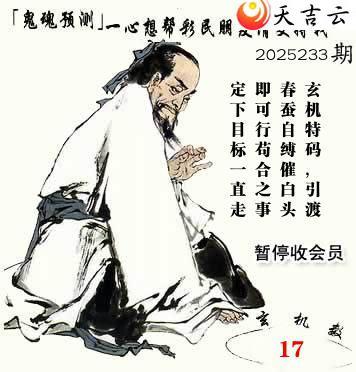 天吉云
「鬼魂预测」一心想帮彩民朋
2025233期
玄机特码，引渡
春蚕自缚催白头
即可行苟合之事
定下目标一直走
暂停收会员
玄机数
17